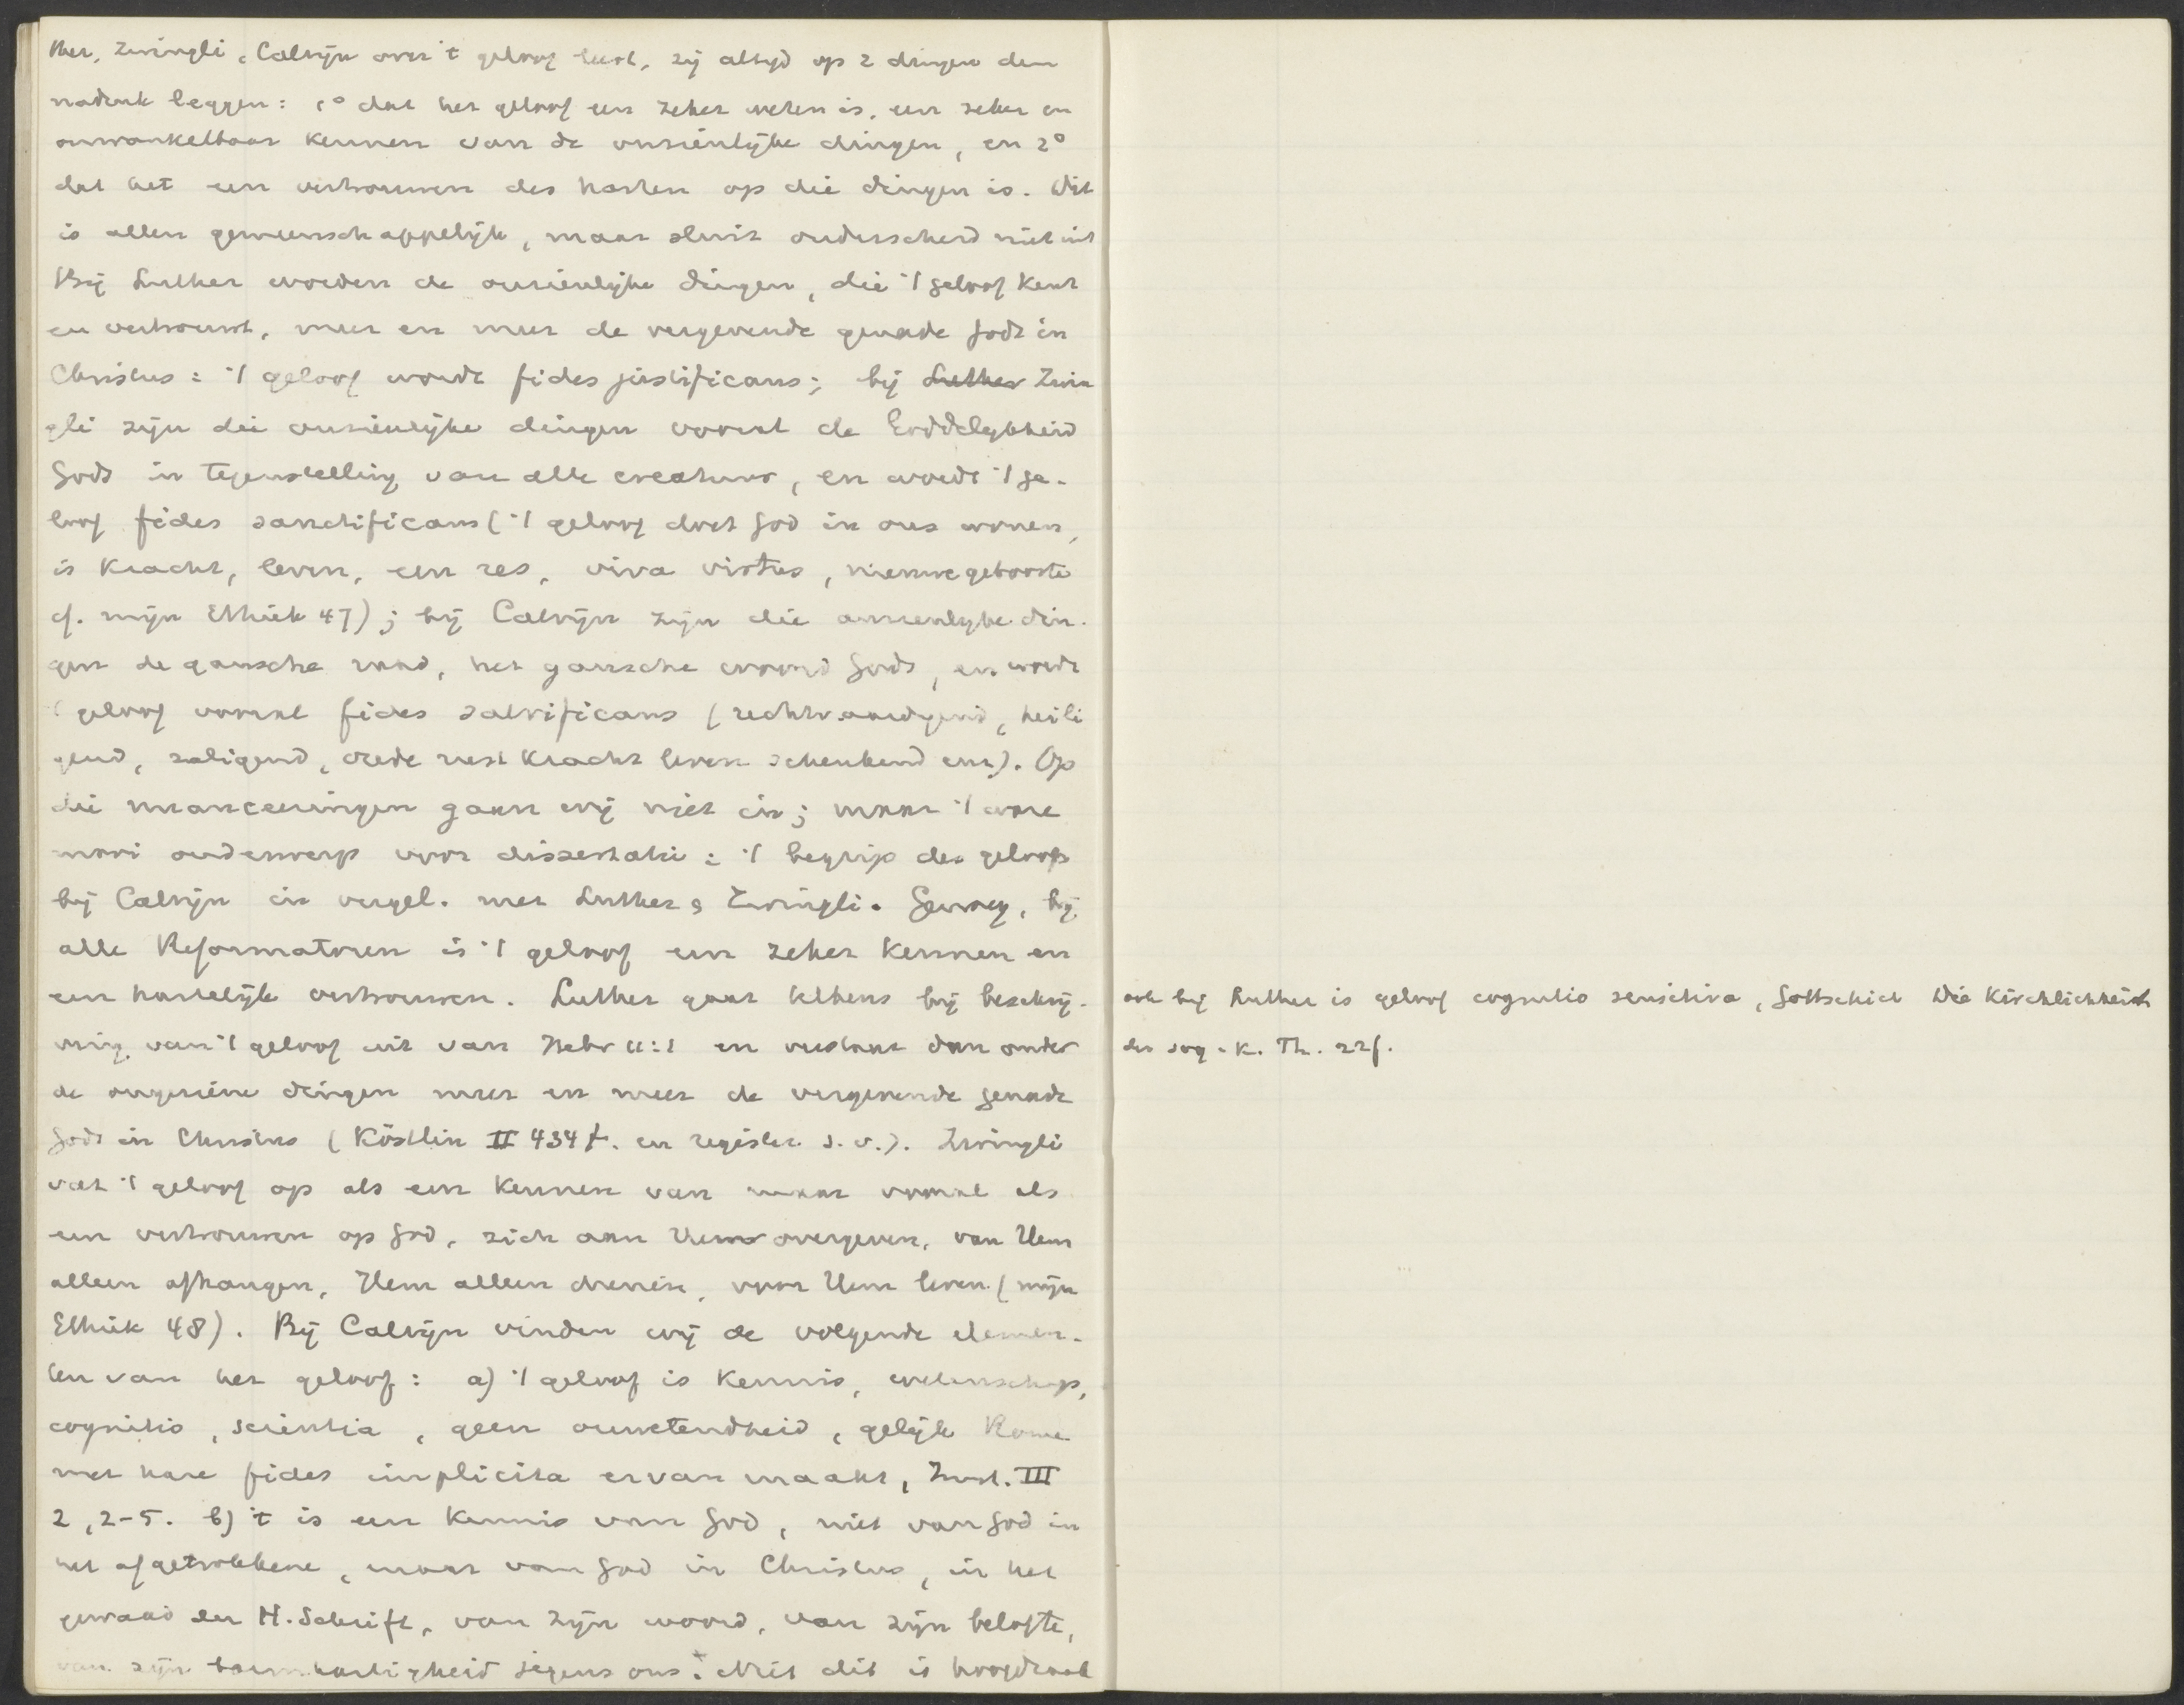 ther, Zwingli, Calvijn over 't geloof leest, zij altijd op 2 dingen den
nadruk leggen: 1° dat het geloof een zeker weten is, een zeker en
onwankelbaar kennen van de onzienlijke dingen, en 2°
dat het een vertrouwen des harten op die dingen is. Dit
is allen gemeenschappelijk, maar sluit onderscheid niet uit
Bij Luther worden de onzienlijke dingen, die 't geloof kent
en vertrouwt, meer en meer de vergevende genade Gods in
Christus: 't geloof wordt fides justificans; bij Luther Zwin
gli zijn die onzienlijke dingen vooral de Goddelijkheid
Gods in tegenstelling van alle creatuur, en wordt 't ge-
loof fides sanctificans ('t geloof doet God in ons wonen,
is kracht, leven, een res, viva virtus, nieuwe geboorte
cf. mijn Ethiek 47); bij Calvijn zijn die onzienlijke din-
gen de gansche raad, het gansche woord Gods, en wordt
't geloof vooral fides salvificans (rechtvaardigend, heili
gend, zaligend, vrede rust kracht leven schenkend enz.). Op
die nuanceeringen gaan wij niet in; maar 't ware
mooi onderwerp voor dissertatie: 't begrip des geloofs
bij Calvijn in vergel. met Luther & Zwingli. Genoeg, bij
alle Reformatoren is 't geloof een zeker kennen en
een hartelijk vertrouwen. Luther gaat telkens bij beschrij-
ving van 't geloof uit van Hebr 11:1 en verstaat dan onder
de ongeziene dingen meer en meer de vergevende genade
Gods in Christus (Köstlin II 434 f. en register s.v.). Zwingli
vat 't geloof op als een kennen van maar vooral als
een vertrouwen op God, zich aan Hem overgeven, van Hem
alleen afhangen, Hem alleen dienen, voor Hem leven (mijn
Ethiek 48). Bij Calvijn vinden wij de volgende elemen-
ten van het geloof: a) 't geloof is kennis, wetenschap,
cognitio, scientia, geen onwetendheid, gelijk Rome
met hare fides implicita ervan maakt, Inst. III
2, 2-5. b) 't is een kennis van God, niet van God in
het afgetrokkene, maar van God in Christus, in het
gewaad der H. Schrift, van zijn woord, van zijn belofte,
van zijn barmhartigheid jegens ons. Niet dit is
ook bij Luther is geloof cognitio sensitiva, Gottschick Die Kirchlichkeit
der sog. k. Th. 22 f.